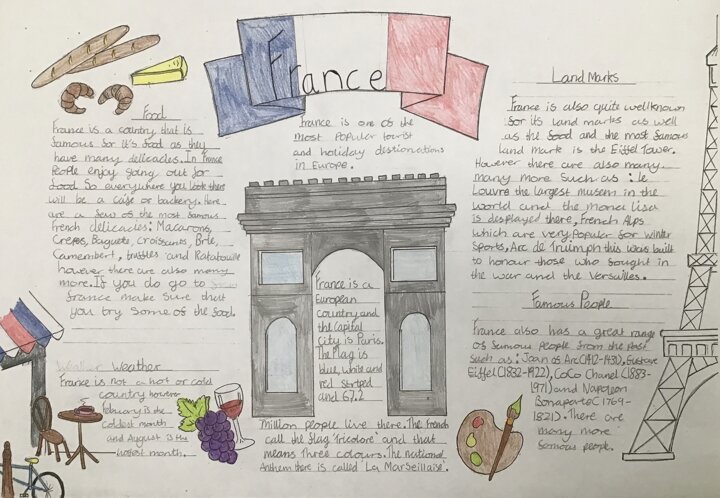 France
Food
France is a country that is
famous for it's food as they
have many delicacies. In France
People enjoy going out for
food so everywhere you look there
will be a cafe or backery. Here
are a few of the most famous
French delicacies: Macarons,
Crepes, Baguete, croissants, Brie,
Camembert, truffles and Ratatouille
however there are also many
more. If you do go to
france make sure that
you try some of the food.
Weather Weather
France is not a hot or cold
country however
february is the
coldest month
and August is the
hottest month.
France is one of the
most Popular tourist
and holiday destionations
in Europe.
France is a
European
country and
the Capital
City is Paris.
The flag is
blue, white and
red striped
and 67.2
Million people live there. The french
call the flag 'tricolore' and that
means three colours. The national
Anthem there is called 'La Marseillaise'.
Land Marks
France is also quite wellknown
for its land marks as well
as the food and the most famous
land mark is the Eiffel Tower.
However there are also many
many more Such as: le
Louvre the largest musem in the
world and the mona lisa
is displayed there, French Alps
which are very Popular for winter
sports, Arc de Truimph this was built
to honour those who fought in
the war and the Versailles.
Famous People
France also has a great range
of famous people from the Past
such as: Joan of Arc (1412-1430), Gustave
Eiffel (1832-1922), CoCo Chanel (1883-
1971) and Napoleon
Bonaparte (1769-
1821). There are
many more
famous people.